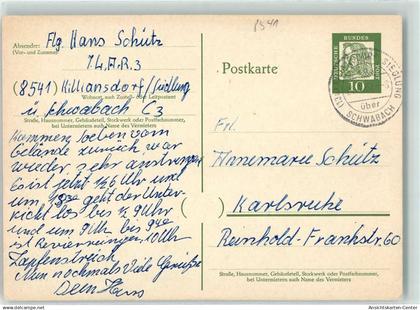 8541
Absender:
(Vor- und Zuname)
Flg. Hans Schütz
14. A.R. 3
(8541) Killiansdorf / Siedlung
Wohnort, auch Zustell- oder Leitpostamt
ü. Schwabach C 3
Straße, Hausnummer, Gebäudeteil, Stockwerk oder Postfachnummer,
bei Untermietern auch Name des Vermieters
Postkarte
DEUTSCHE BUNDESPOST
10
SIEDLUNG
über
SCHWABACH
Kommen soeben vom
Gelände zurück war
wieder sehr anstrengend
Es ist jetzt ½6 Uhr und
um geht der Unter-
richt los bis ½ 9 Uhr
und um 9 Uhr bis 9
ist 10 Uhr
Zapfenstreich
Nun nochmals viele Grüsse
Dein Hans
Frl.
Annemarie Schütz
Karlsruhe
Reinhold-Frankstr. 60
Straße, Hausnummer, Gebäudeteil, Stockwerk oder Postfachnummer,
bei Untermietern auch Name des Vermieters
Ansichtskarten-Center.de